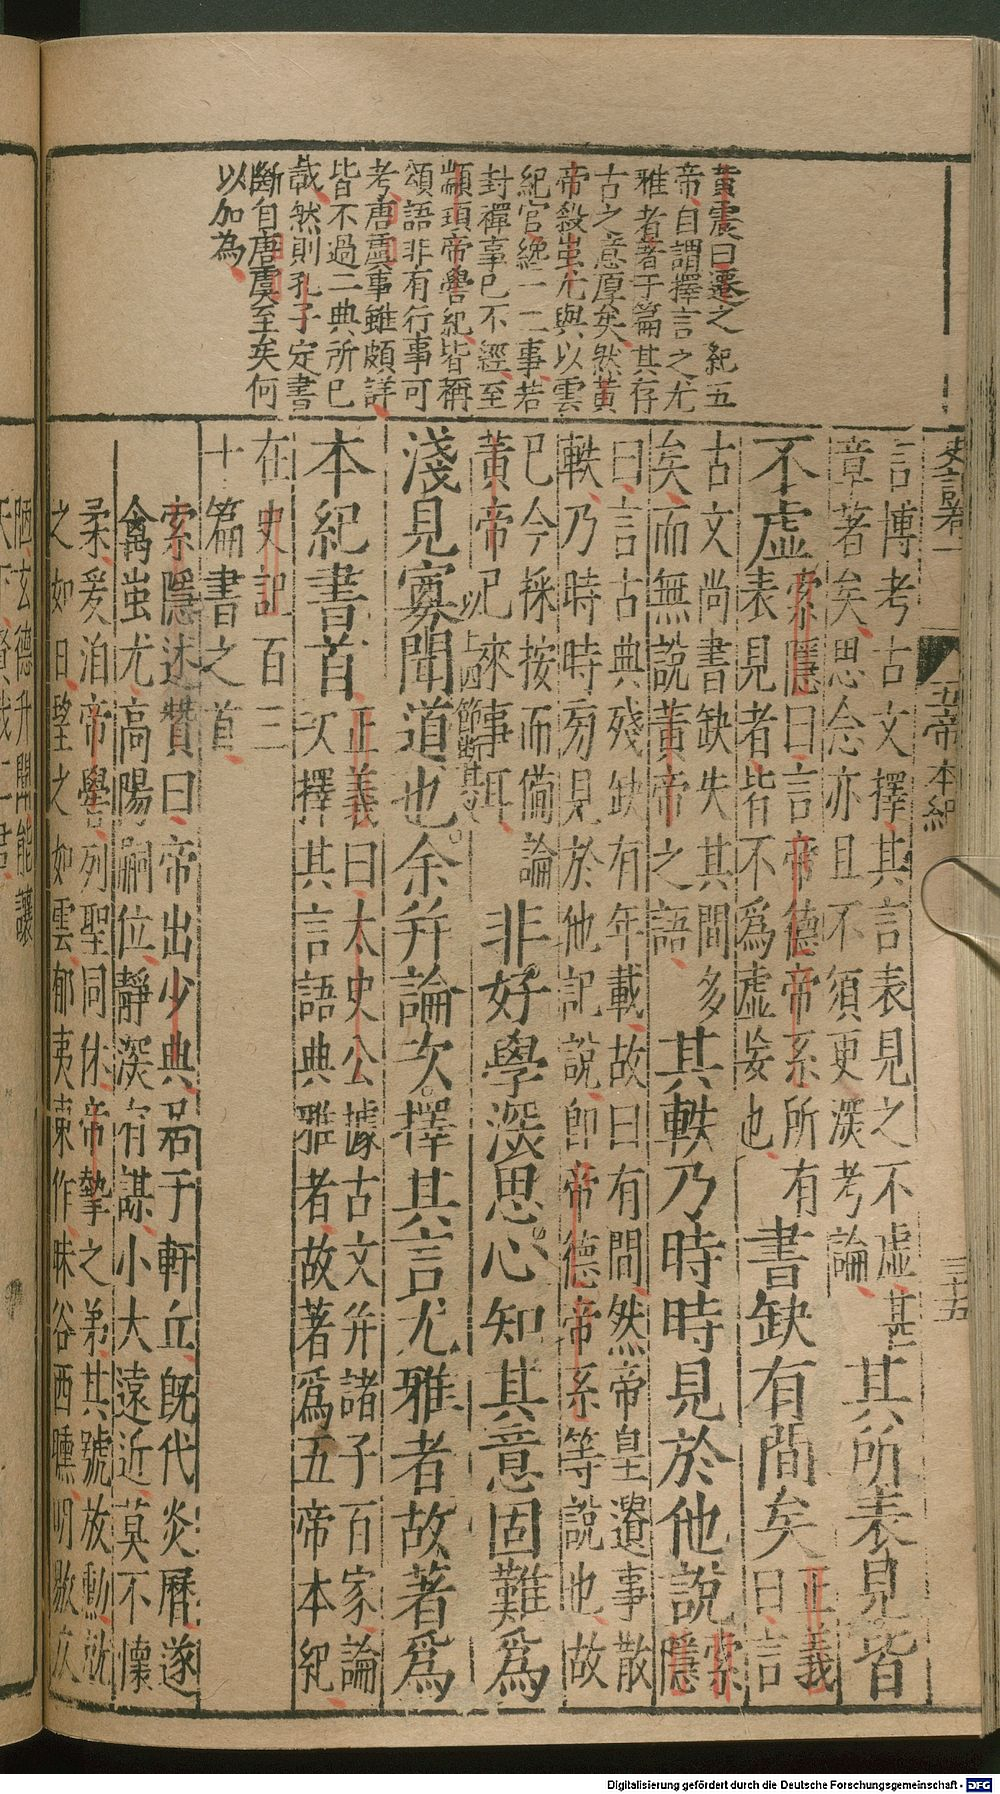 黃震曰遷之紀五
帝自謂擇言之尤
雅者著于篇其存
古之意厚矣然黃
帝殺蚩尤與以雲
紀官纔一二事若
封禪事已不經至
顓頊帝嚳紀皆稱
頌語非有行事可
考唐虞事雖頗詳
皆不過二典所已
載然則孔子定書
斷自唐虞至矣何
以加為
史記卷一
五帝本紀
三十五
言博考古文擇其言表見之不虛甚
章著矣思念亦且不須更深考論
其所表見皆
不虛
索隱曰言帝德帝系所有
表見者皆不為虛妄也
書缺有間矣
正義
曰言
古文尚書缺失其間多
矣而無說黃帝之語
其軼乃時時見於他說
索
隱
曰言古典殘缺有年載故曰有間然帝皇遺事散
軼乃時時旁見於他記說即帝德帝系等說也故
己今採按而備論
黃帝已來事耳
非好學深思心知其意固難爲
淺見寡聞道也
以上四節斷其文
余并論次擇其言尤雅者故著爲
本紀書首
正義曰太史公據古文并諸子百家論
次擇其言語典雅者故著爲五帝本紀
在史記百三
十篇書之首
索隱述贊曰帝出少典居于軒丘既代炎曆遂
禽蚩尤高陽嗣位靜深有謀小大遠近莫不懷
柔爰洎帝嚳列聖同休帝摯之弟其號放勳就
之如日望之如雲郁夷東作昧谷西曛明敭仄
陋玄德升聞能讓
天下賢哉二君
Digitalisierung gefördert durch die Deutsche Forschungsgemeinschaft - DFG